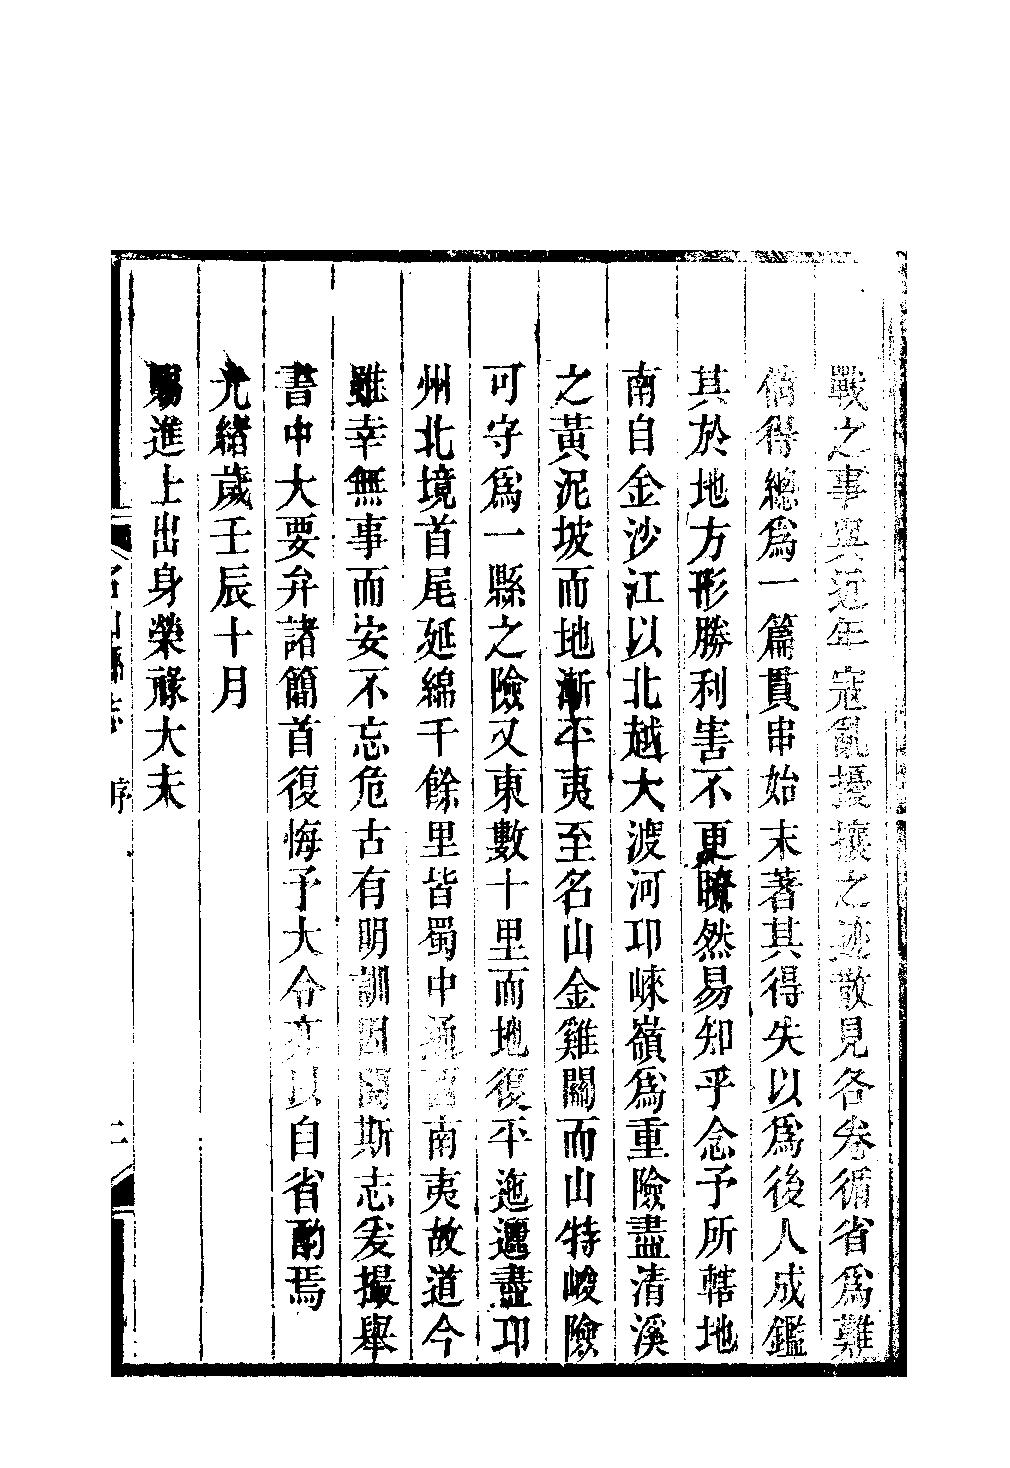 戰之事與近年寇亂擾攘之迹散見各卷循省爲難
倘得總爲一篇貫串始末著其得失以爲後人成鑑
其於地方形勝利害不更瞭然易知乎念予所轄地
南自金沙江以北越大渡河邛崍嶺爲重險盡清溪
之黃泥坡而地漸平夷至名山金雞關而山特峻險
可守爲一縣之險又東數十里而地復平迤邐盡邛
州北境首尾延綿千餘里皆蜀中通西南夷故道今
雖幸無事而安不忘危古有明訓因閱斯志爰撮舉
書中大要弁諸簡首復悔予大令亦以自省酌焉
光緒歲壬辰十月
賜進士出身榮祿大夫
名山縣志 序 二